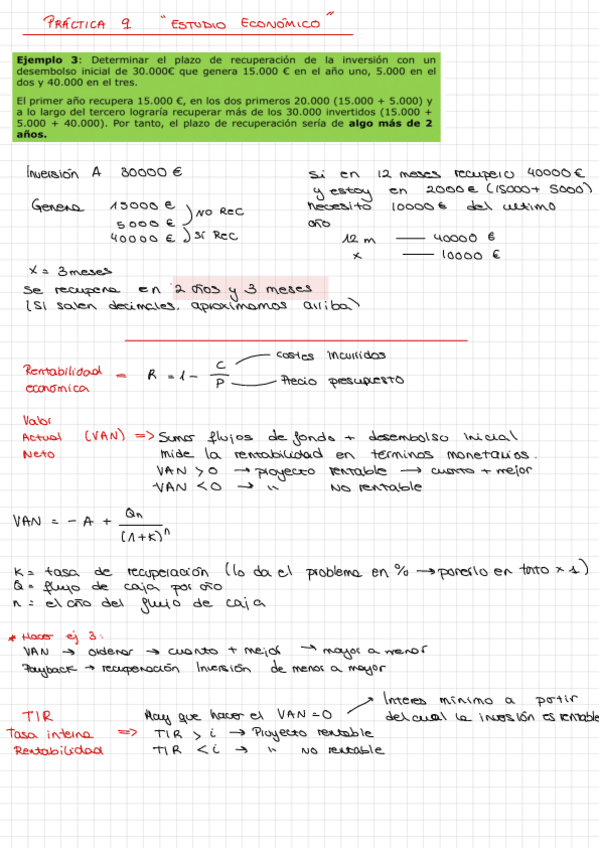 PRÁCTICA 9 "ESTUDIO ECONÓMICO"
Ejemplo 3: Determinar el plazo de recuperación de la inversión con un
desembolso inicial de 30.000€ que genera 15.000 € en el año uno, 5.000 en el
dos y 40.000 en el tres.
El primer año recupera 15.000 €, en los dos primeros 20.000 (15.000 + 5.000) y
a lo largo del tercero lograría recuperar más de los 30.000 invertidos (15.000 +
5.000 + 40.000). Por tanto, el plazo de recuperación sería de algo más de 2
años.
Inversión A 30000 €
Genera 15000 €
5000 €
40000 €
NO REC
SÍ REC
Si en 12 meses recupero 40000 €
y estoy en 2000 € (15000 + 5000)
necesito 10000 € del ultimo
año
12 m — 40000 €
x — 10000 €
x = 3 meses
Se recupera en 2 años y 3 meses
(Si salen decimales, aproximamos arriba)
Rentabilidad
económica = R = 1 - C/P
costes incurridos
Precio presupuesto
Valor
Actual (VAN) => Sumar flujos de fondo + desembolso inicial
Neto mide la rentabilidad en términos monetarios.
VAN > 0 → proyecto rentable → cuanto + mejor
VAN < 0 → " NO rentable
VAN = - A + Qn/(1+K)^n
K = tasa de recuperación (lo da el problema en % → ponerlo en tanto x 1)
Q = flujo de caja por año
n = el año del flujo de caja
* Hacer ej 3:
VAN → ordenar → cuanto + mejor → mayor a menor
Payback → recuperación Inversión de menor a mayor
TIR Hay que hacer el VAN = 0 → Interes mínimo a partir
del cual la inversión es rentable
Tasa interna => TIR > i → Proyecto rentable
Rentabilidad TIR < i → " NO rentable